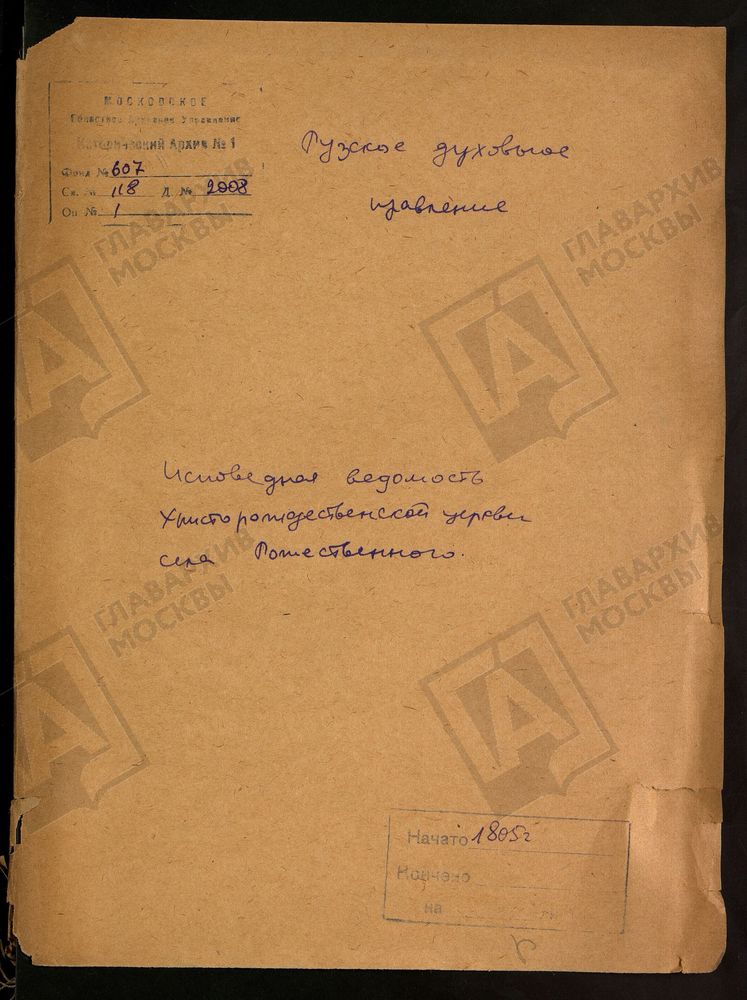 МОСКОВСКОЕ
Областное Архивное Управление
Исторический Архив № 1
Фонд № 607
Св. № 118 Д. № 2008
Оп № 1
Рузское духовное
правление
Исповедная ведомость
Христорождественской церкви
села Рожественного.
Начато 1805г
Кончено
на
ГЛАВАРХИВ
МОСКВЫ
ГЛАВАРХИВ
МОСКВЫ
ГЛАВАРХИВ
МОСКВЫ
ГЛАВАРХИВ
МОСКВЫ